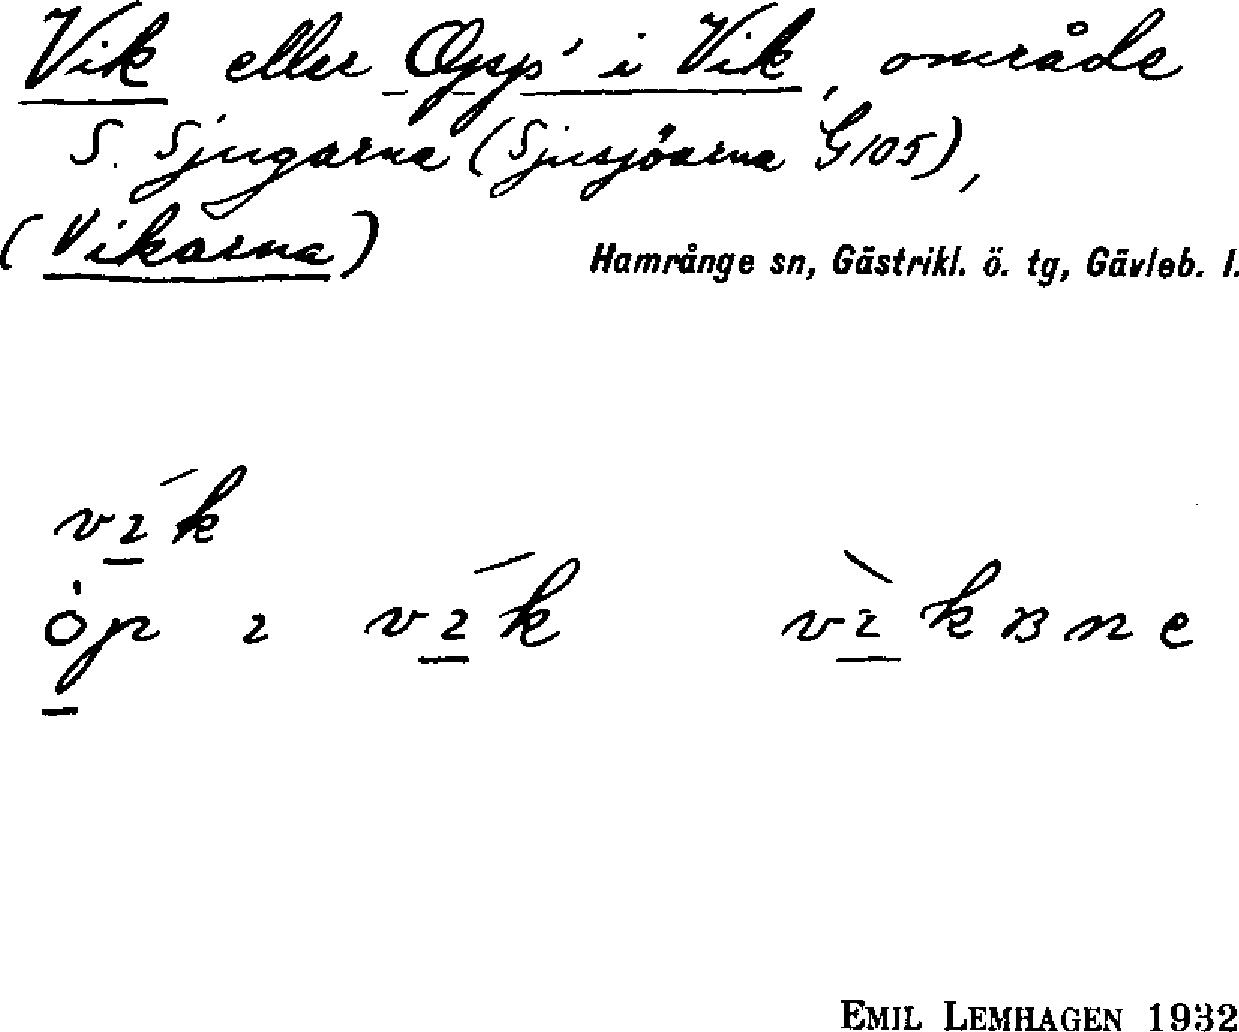 Vik eller Opp' i Vik, område
S. Sjugarna (Sjusjöarna G105),
(Vikarna)
Hamrånge sn, Gästrikl. ö. tg, Gävleb. l.
vík
öp ı vík vìkʙne
EMIL LEMHAGEN 1932